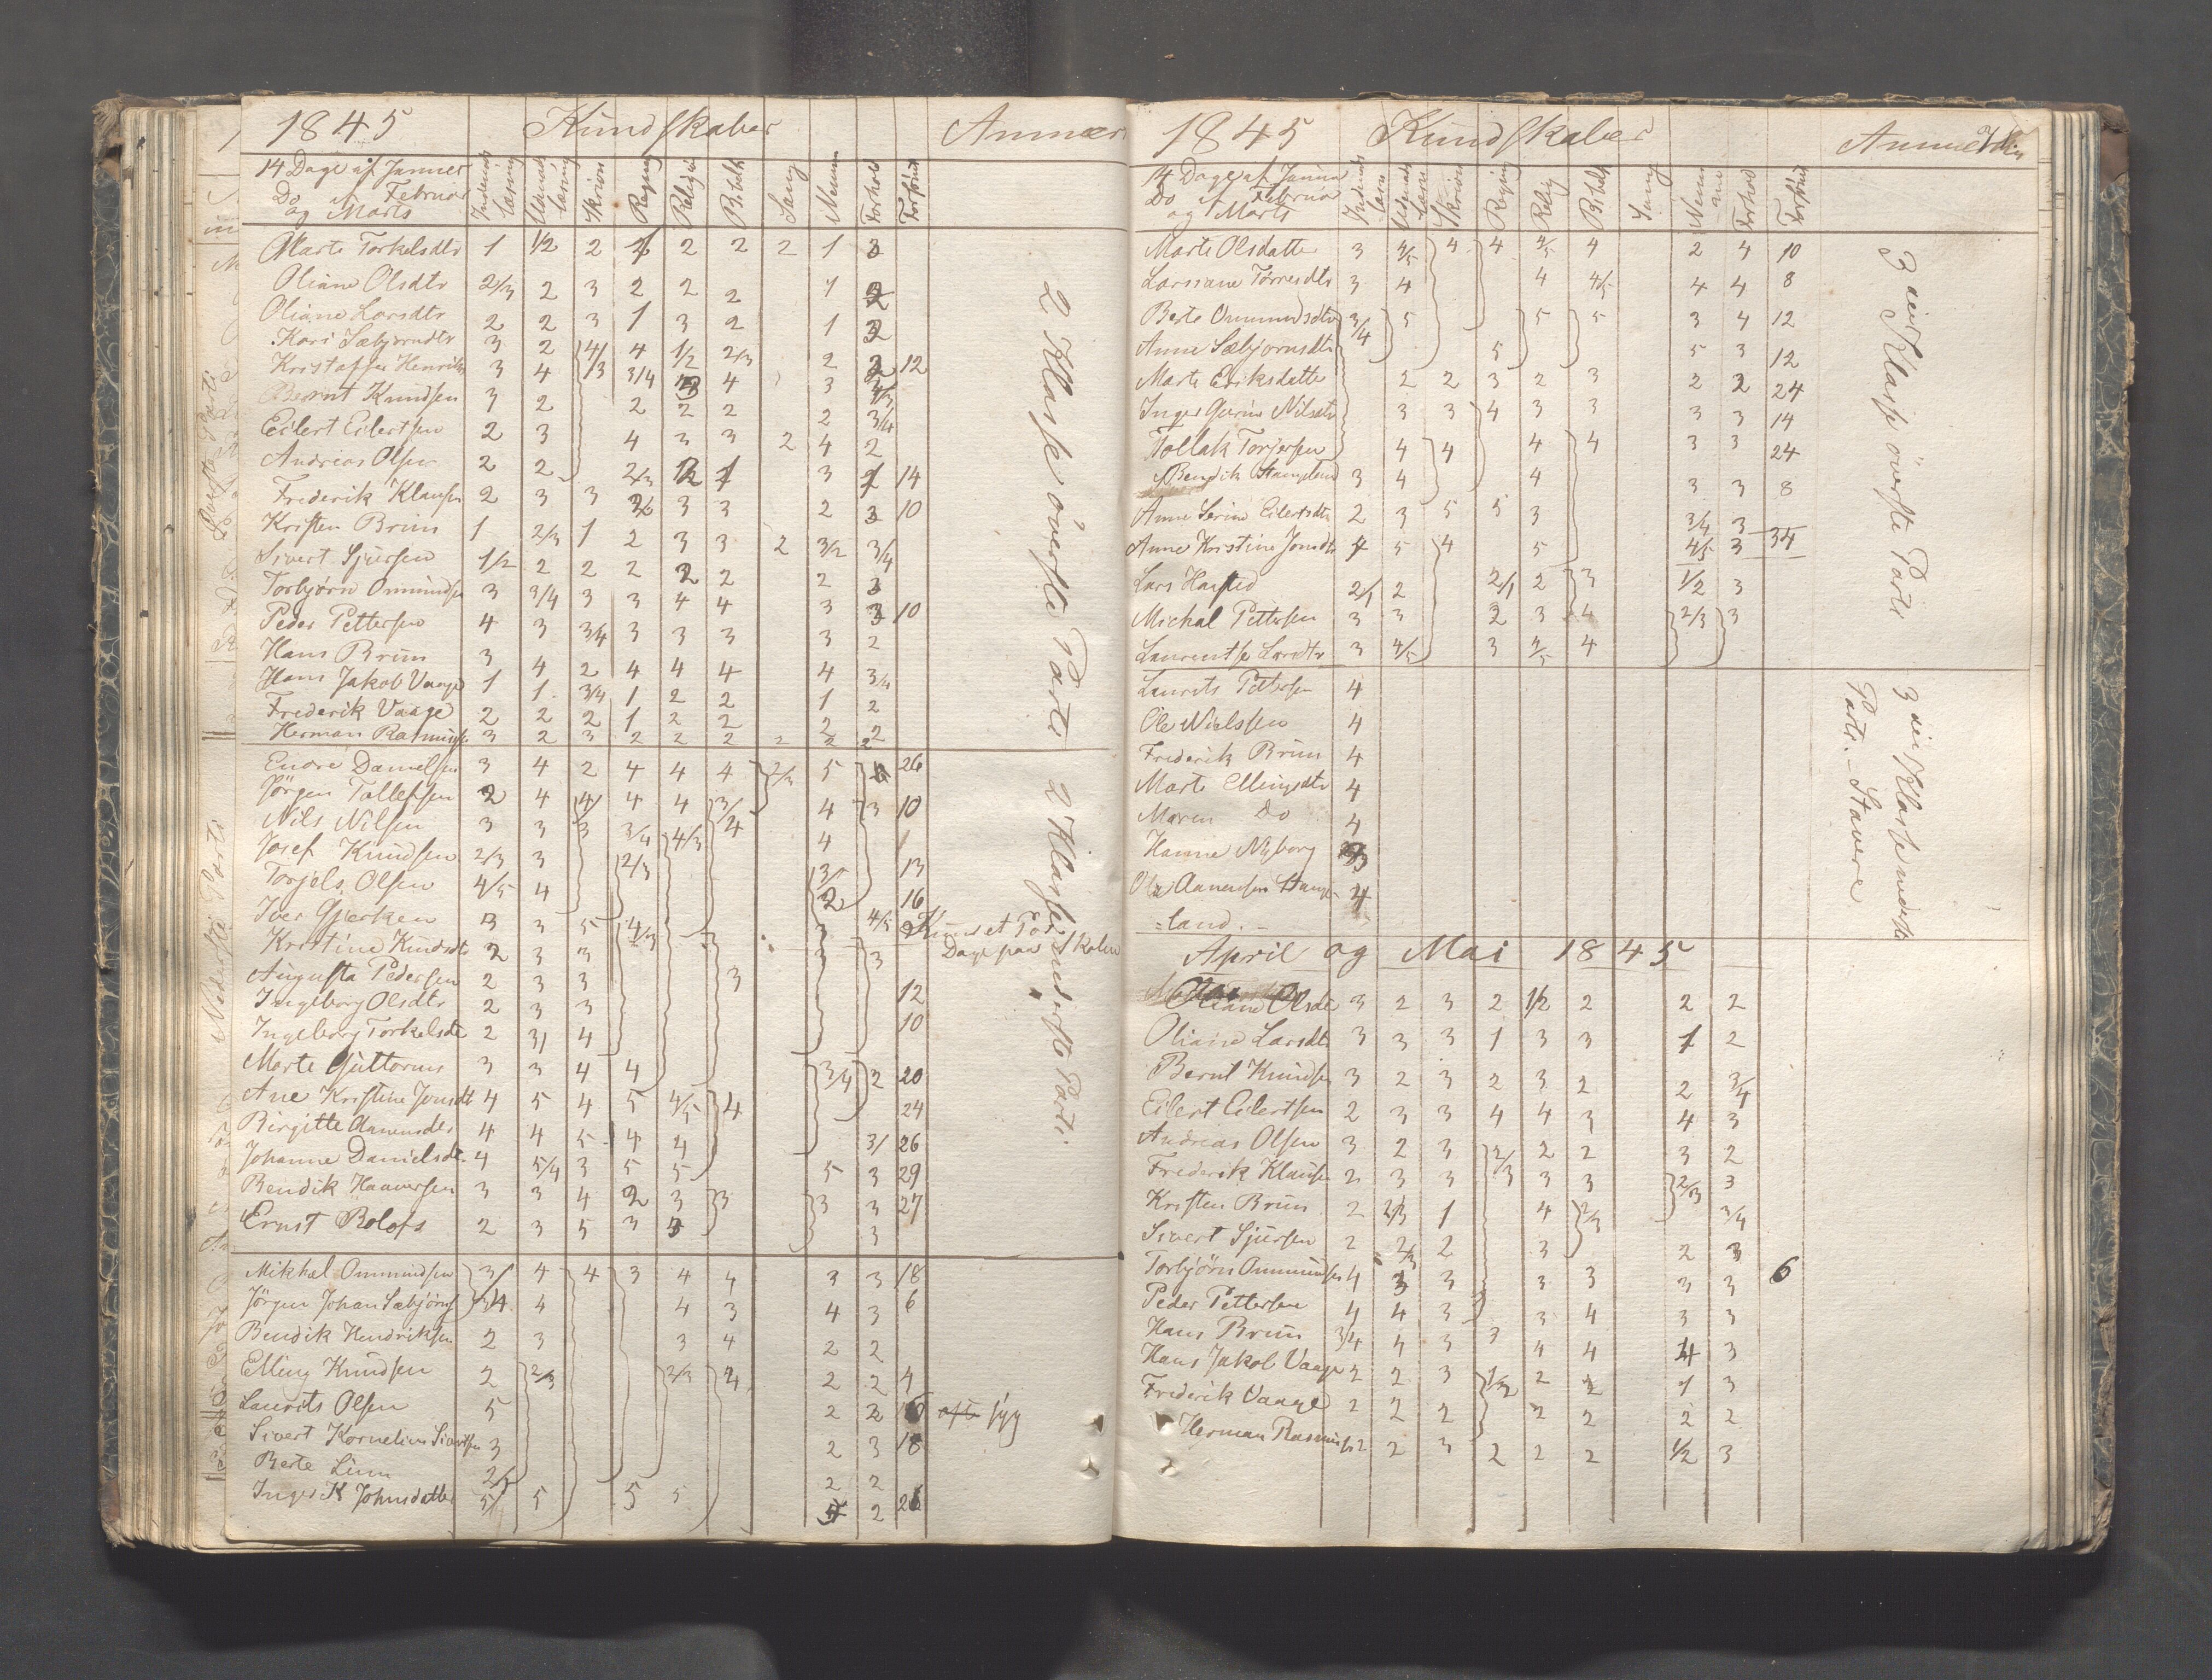 1845 Kundskaber Anmær
14 Dage af Januer
Do af Februar
og Marts
Indenads Læsning Udenads Læsning Skrivn Regng Religio B. hist Sang Nemme Forhold Forsømt
Marte Torkelsdtr 1 1/2 2 2 2 2 1 3
Oliane Olsdtr 2/3 2 3 2 2 2 1 2
Oliane Larsdtr 2 2 3 1 3 2 1 3
Kari Sæbjørndtr 3 2 4/3 4 1/2 2/3 2 2 12
Kristoffer Henriks 3 4 3/4 4 3 4/3
Bernt Knudsen 3 2 2 2 2 2 3/4
Eilert Eilertsen 2 3 4 3 3 2 4 2
Andrias Olsen 2 2 2/3 2 1 3 1 14
Frederik Klausen 2 3 3 3 3 2 3 10
Kristen Brun 1 2/3 1 2 3 3 2 3/2 3/4
Sivert Sjursen 1/2 2 2 2 2 2 2 3
Torbjørn Ommundse 3 3/4 3 3 4 4 3 3 10
Peder Pettersen 4 3 3/4 3 3 3 3 2
Hans Brun 3 4 2 4 4 4 4 3/4
Hans Jakob Vaage 1 1 3/4 1 2 2 1 2
Frederik Vaage 2 2 2 1 2 2 2 2
Herman Rasmusse 3 2 3 2 2 2 2 2 2
2 Klasse øverste Parti
Endre Danielsen 3 4 2 4 4 4 2/3 5 26
Jørgen Tollefsen 2 4 4/ 4 4 3/ 4 3 10
Nils Nilsen 3 3 3 3/4 4/3 4 4 1
Josef Knudsen 2/3 3 2/3 3/ 13
Torjels Olsen 4/5 4 2 16
Iver Gjerken 3 3 5 4/3 3 4/5 Kun et Par
Kristine Knudsdt 2 3 3 3 3 Dage paa Skolen
Augusta Pedersen 2 3 3 3
Ingeborg Olsdtr 2 3 3 12
Ingeborg Torkelsdt 2 3/ 4 10
Marte Guttorms 3 3 4 4 3/4 2 20
Ane Kristine Jonsdt 4 5 4 5 4/5 4 24
Birgitte Aanensdtr 4 4 5 4 4 3/ 26
Johanne Danielsdt 4 5/4 3 5 5 5 3 29
Bendik Haaversen 3 3 4 2 3 3 3 3 27
Ernst Rolofs 2 3 5 3 3
2 Klasse nederste Parti
Mikhal Ommundsen 3/ 4 4 3 4 4 3 3 18
Jörgen Johan Sæbjörns 4 4 3 4 3 6
Bendik Hendriksen 2 3 3 4 2 2
Elling Knudsen 2 2/3 2/3 4 2 2 4
Laurits Olsen 5 2 2 ofte syg
Sivert Kornelius Sivertsen 3 2 3 18
Berte Linn 2/3 2 2
Inger K Johnsdatter 5/ 5 5 5 2 26
1845 Kundskaber Anmærkn
14 Dage af Janua
Do af Februa
og Marts
Indenads Læsn Udenads Læsn Skrivn Regng Relig B. hist Sang Nemme Forhold Forsømt
Marte Olsdatter 3 4/5 4 4 4/5 4 2 4 10
Larsiane Tørresdtr 3 4 4 4/5 4 4 8
Berte Ommundsdtr 3/4 5 5 5 3 4 12
Anne Sæbjornsdtr 5 5 3 12
Marte Eriksdatter 2 2 3 2 3 2 2 24
Inger Gurine Nilsdtr 3 3 4 3 3 3 3 14
Tollak Torjersen 4 4 4 4 3 3 24
Bendik Stangeland 3 4 4 3 3 8
Anne Serine Eilertsdtr 2 3 5 5 3 3/4 3
Anne Kristine Jonsdtr 4 5 4 5 4/5 3 34
Lars Hasted 2/1 2 2/1 2 3 1/2 3
Michal Pettersen 3 3 2 3 4 2/3 3
Laurentse Larsdtr 3 4/5 3 4/5 4
3die Klasse øverste Parti
Laurits Pettersen 4
Ole Nielssen 4
Frederik Brun 4
Marte Ellingsdtr 4
Maren Do 4
Hanne Nyborg 3
Ole Aanensen Stange- 4
=land.-
3die Klasse nederste
Parti. - Stavere
April og Mai 1845
Oliane Olsdt 3 2 3 2 1/2 2 2 2
Oliane Larsdt 3 3 3 1 3 3 1 2
Bernt Knudsen 3 2 3 2 3 2 2 3/4
Eilert Eilertsen 2 3 3 4 4 3 4 3
Andreas Olsen 3 2 3 2/3 2 2 3 2
Frederik Klausen 2 3 3 3 3 2/3 3
Kristen Brun 2 2/3 1 4 2/3 3/4
Sivert Sjursen 2 2/3 2 3 2 3
Torbjörn Ommundsen 4 3 3 3 3 3 3 6
Peder Pettersen 4 4 3 3 4 3 3
Hans Brun 3/4 4 3 3 4 4 4 3
Hans Jakob Vaage 2 2 3 1/2 2 2 1 3
Frederik Vaage 2 2 2 2 2 2 2
Herman Rasmusse 2 2 3 2 2 2 1/2 3